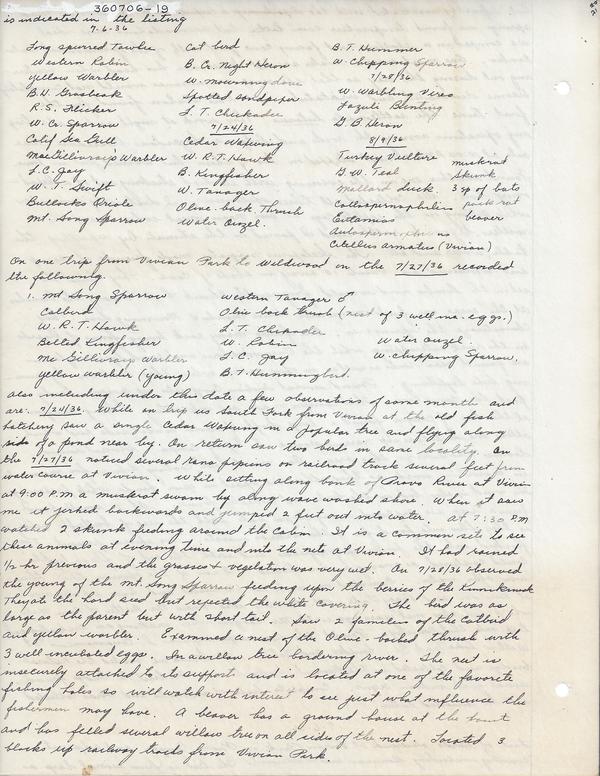 360706-19
is indicated in the listing
7-6-36
Long spurred Towhee
Western Robin
yellow Warbler
B.H. Grosbeak
R.S. Flicker
W. Cr. Sparrow
Calif Sea Gull
MacGillivrays Warbler
L.C. Jay
W. T. Swift
Bullocks Oriole
Mt. Song Sparrow
Cat bird
B. Cr. Night Heron
W. Mourning dove
Spotted sandpiper
L. T. Chickadee
7/24/36
Cedar Waxwing
W. R. T. Hawk
B. Kingfisher
W. Tanager
Olive-back Thrush
Water Ouzel.
B. T. Hummer
W. Chipping Sparrow
7/28/36
W. Warbling Vireo
Lazuli Bunting
G. B. Heron
8/9/36
Turkey Vulture
G. W. Teal
Mallard duck.
Callospermophilus
Eutamias
Citellus armatus (Vivian)
muskrat
skunk
3 sp of bats
pack rat
beaver
On one trip from Vivian Park to Wildwood on the 7/27/36 recorded
the following.
1. Mt Song Sparrow
Catbird
W. R. T. Hawk
Belted Kingfisher
Mc Gillivrays Warbler
yellow warbler (young)
Western Tanager ♂
Olive back thrush (nest of 3 well inc. eggs.)
L. T. Chicadee
W. Robin
L. C. Jay
B. T. Hummingbird.
Water ouzel.
W. chipping Sparrow.
Also including under this date a few observations of same month and
are: 7/24/36. While on trip up South Fork from Vivian at the old fish
hatchery saw a single Cedar Waxwing in a popular tree and flying along
side of a pond near by. On return saw two birds in same locality. On
the 7/27/36 noticed several rana pipiens on railroad track several feet from
water course at Vivian. While sitting along bank of Provo River at Vivian
at 9:00 P.M a muskrat swam by along wave washed shore. When it saw
me it jerked backwards and jumped 2 feet out into water. At 7:30 P.M
watched 2 skunk feeding around the cabin. It is a common site to see
these animals at evening time and into the nite at Vivian. It had rained
1/2 hr previous and the grasses + vegetation was very wet. On 7/28/36 observed
the young of the Mt. Song Sparrow feeding upon the berries of the Kinnikinnick
They ate the hard seed but rejected the white covering. The bird was as
large as the parent but with short tail. Saw 2 families of the Catbird
and yellow warbler. Examined a nest of the Olive-backed thrush with
3 well incubated eggs. In a willow tree bordering river. The nest is
insecurely attached to its support and is located at one of the favorite
fishing holes so will watch with interest to see just what influence the
fishermen may have. A beaver has a ground house at the
and has felled several willow tree on all sides of the nest. Located 3
blocks up railway tracks from Vivian Park.